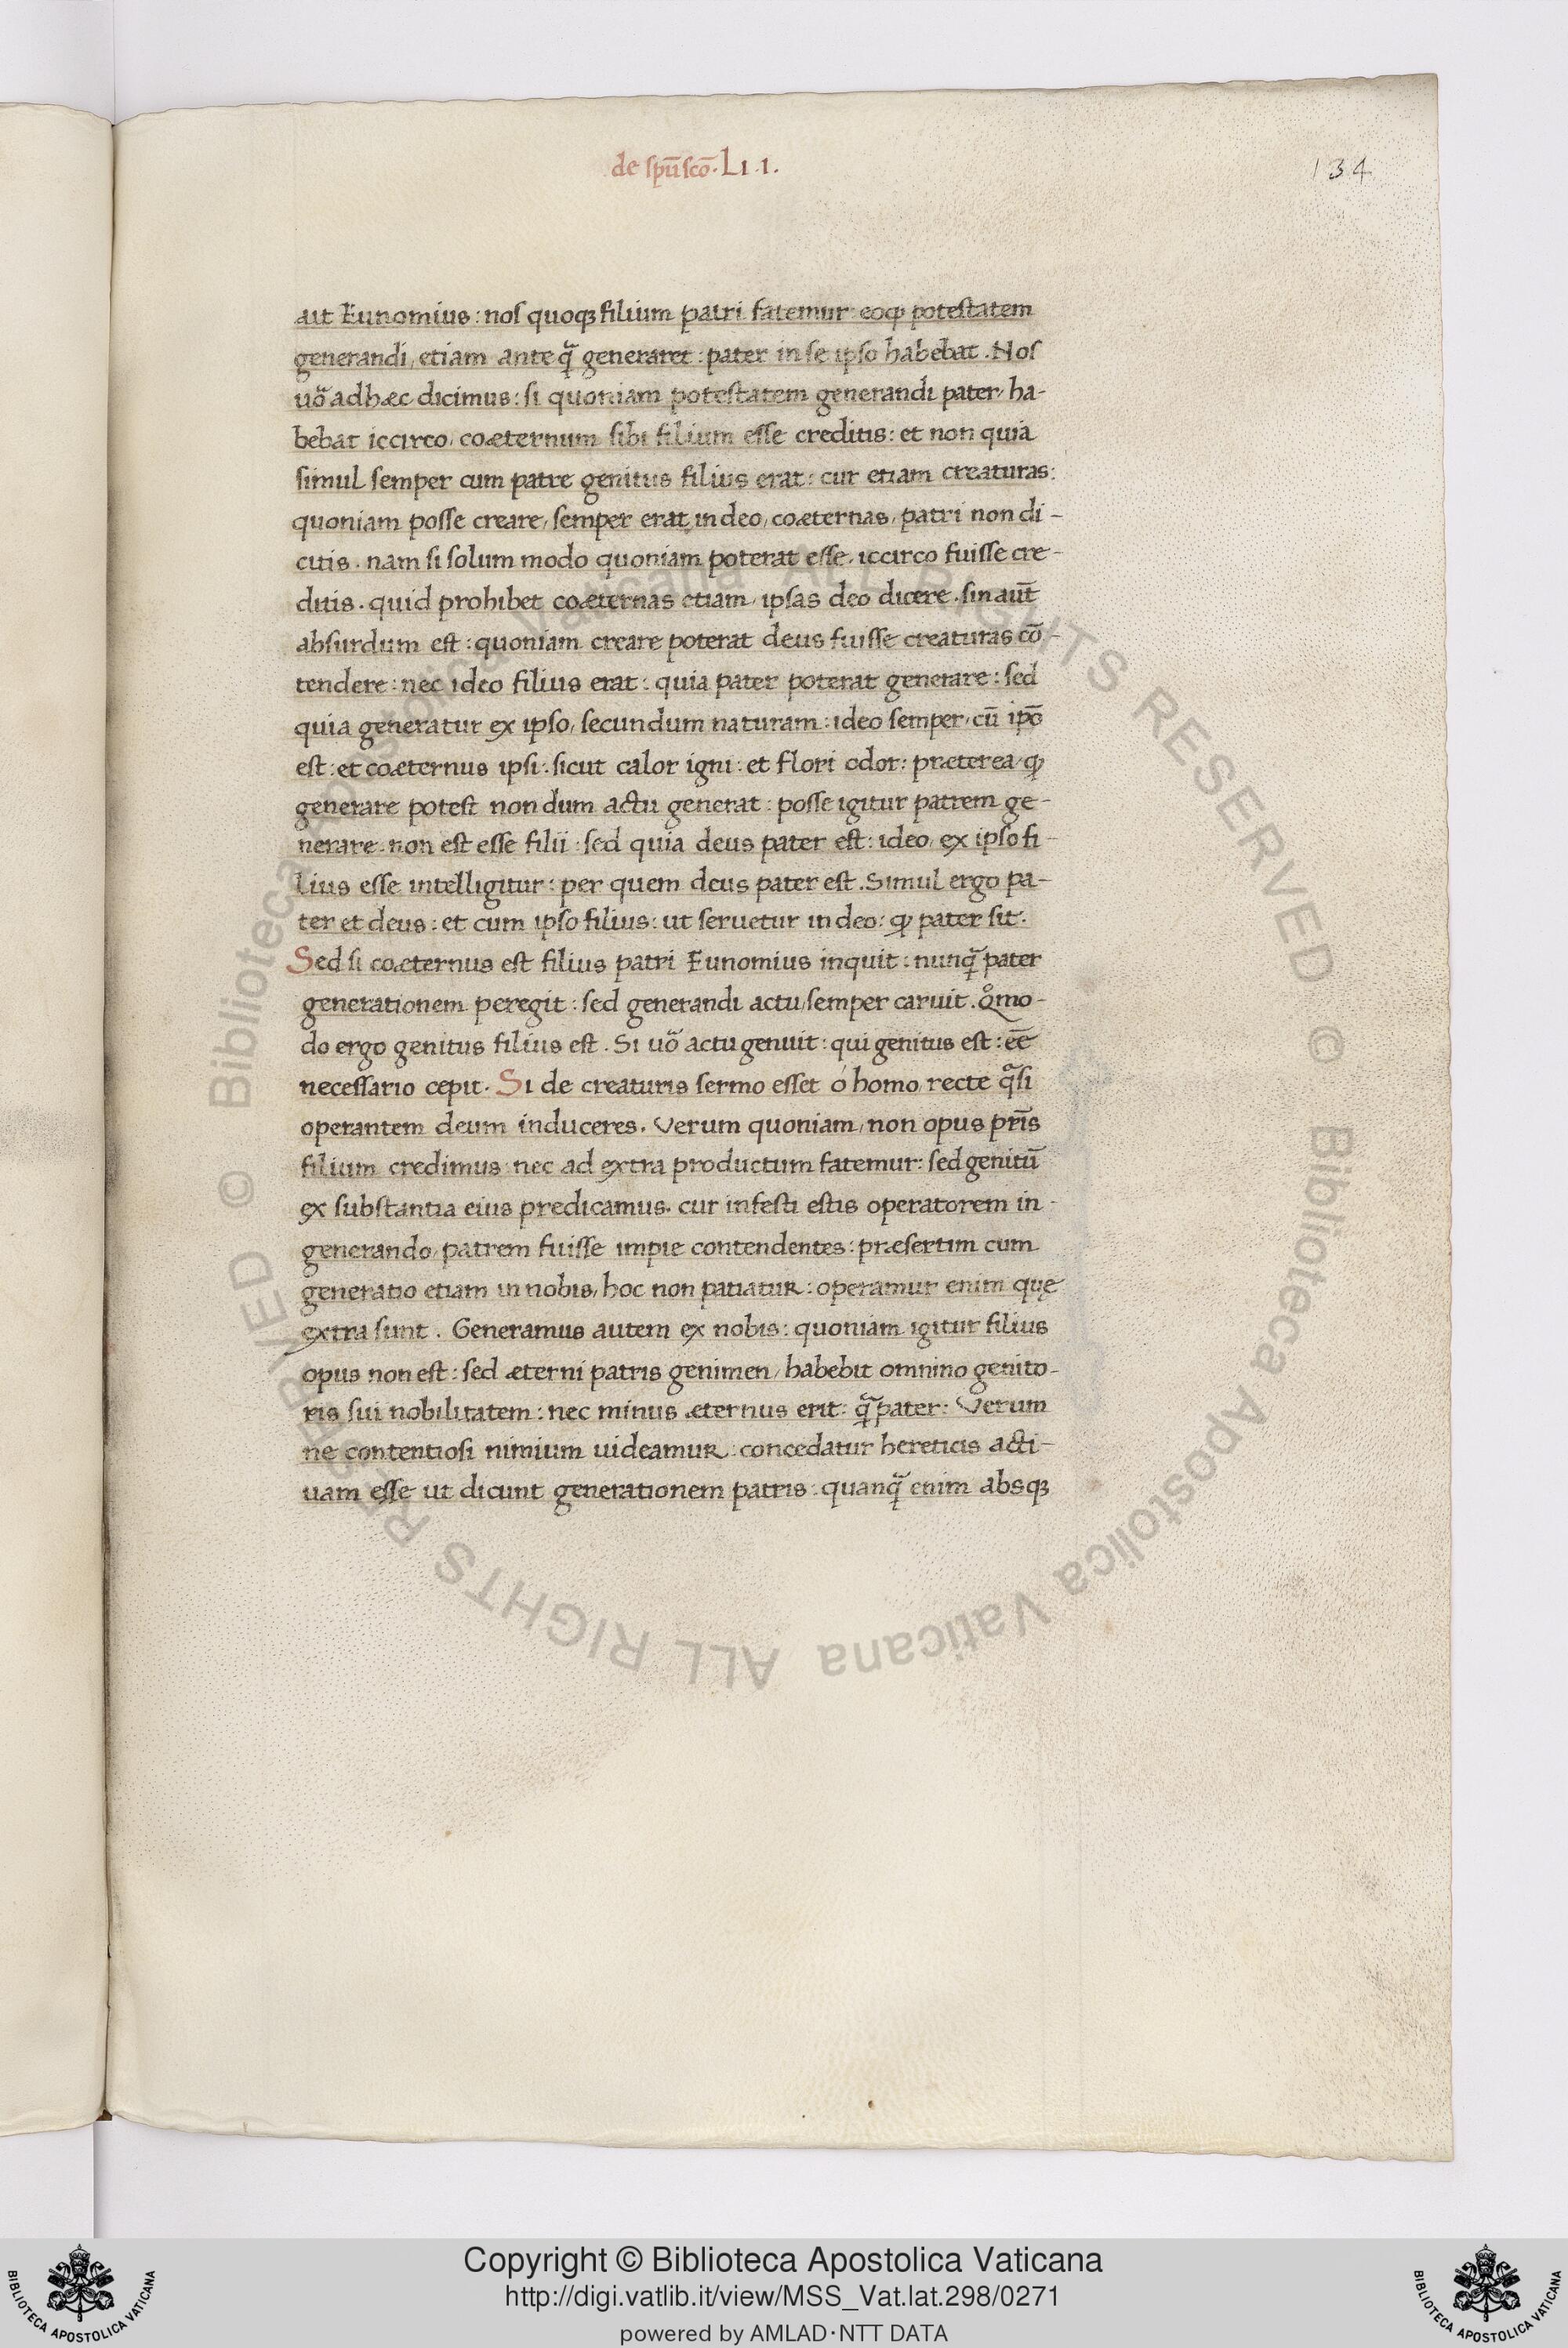 de spū scō. L1.1.
134
ait Eunomius: nos quoqꝫ filium patri fatemur: eoqꝫ potestatem
generandi, etiam ante q̃ generaret: pater in se ipso habebat. Nos
uõ ad hæc dicimus: si quoniam potestatem generandi pater, ha-
bebat iccirco, coæternum sibi filium esse creditis: et non quia
simul semper cum patre genitus filius erat: cur etiam creaturas:
quoniam posse creare, semper erat in deo, coæternas, patri non di-
citis. nam si solum modo quoniam poterat esse, iccirco fuisse cre-
ditis. quid prohibet coæternas etiam, ipsas deo dicere. sin aut̄
absurdum est: quoniam creare poterat deus fuisse creaturas cō-
tendere: nec ideo filius erat: quia pater poterat generare: sed
quia generatur ex ipso, secundum naturam: ideo semper, cū ipō
est: et coæternus ipsi: sicut calor igni: et flori odor: præterea, ꝙ
generare potest non dum actu generat: posse igitur patrem ge-
nerare: non est esse filii: sed quia deus pater est: ideo, ex ipso fi-
lius esse intelligitur: per quem deus pater est. Simul ergo pa-
ter et deus: et cum ipso filius: ut seruetur in deo: ꝙ pater sit.
Sed si coæternus est filius patri Eunomius inquit: nunq̃ pater
generationem peregit: sed generandi actu, semper caruit. qͦmo-
do ergo genitus filius est. Si uõ actu genuit: qui genitus est: eē
necessario cepit. Si de creaturis sermo esset ó homo, recte qᷓsi
operantem deum induceres. Verum quoniam, non opus pr̄is
filium credimus: nec ad extra productum fatemur: sed genitū
ex substantia eius predicamus. cur infesti estis operatorem in-
generando, patrem fuisse impie contendentes: præsertim cum
generatio etiam in nobis, hoc non patiatur: operamur enim quę
extra sunt. Generamus autem ex nobis: quoniam igitur filius
opus non est: sed æterni patris genimen, habebit omnino genito-
ris sui nobilitatem: nec minus æternus erit: q̃ pater: Verum
ne contentiosi nimium uideamur: concedatur hereticis acti-
uam esse ut dicunt generationem patris: quanq̃ enim absqꝫ
© Biblioteca Apostolica Vaticana ALL RIGHTS RESERVED © Biblioteca Apostolica Vaticana ALL RIGHTS RESERVED
BIBLIOTECA APOSTOLICA VATICANA
Copyright © Biblioteca Apostolica Vaticana
http://digi.vatlib.it/view/MSS_Vat.lat.298/0271
powered by AMLAD·NTT DATA
BIBLIOTECA APOSTOLICA VATICANA